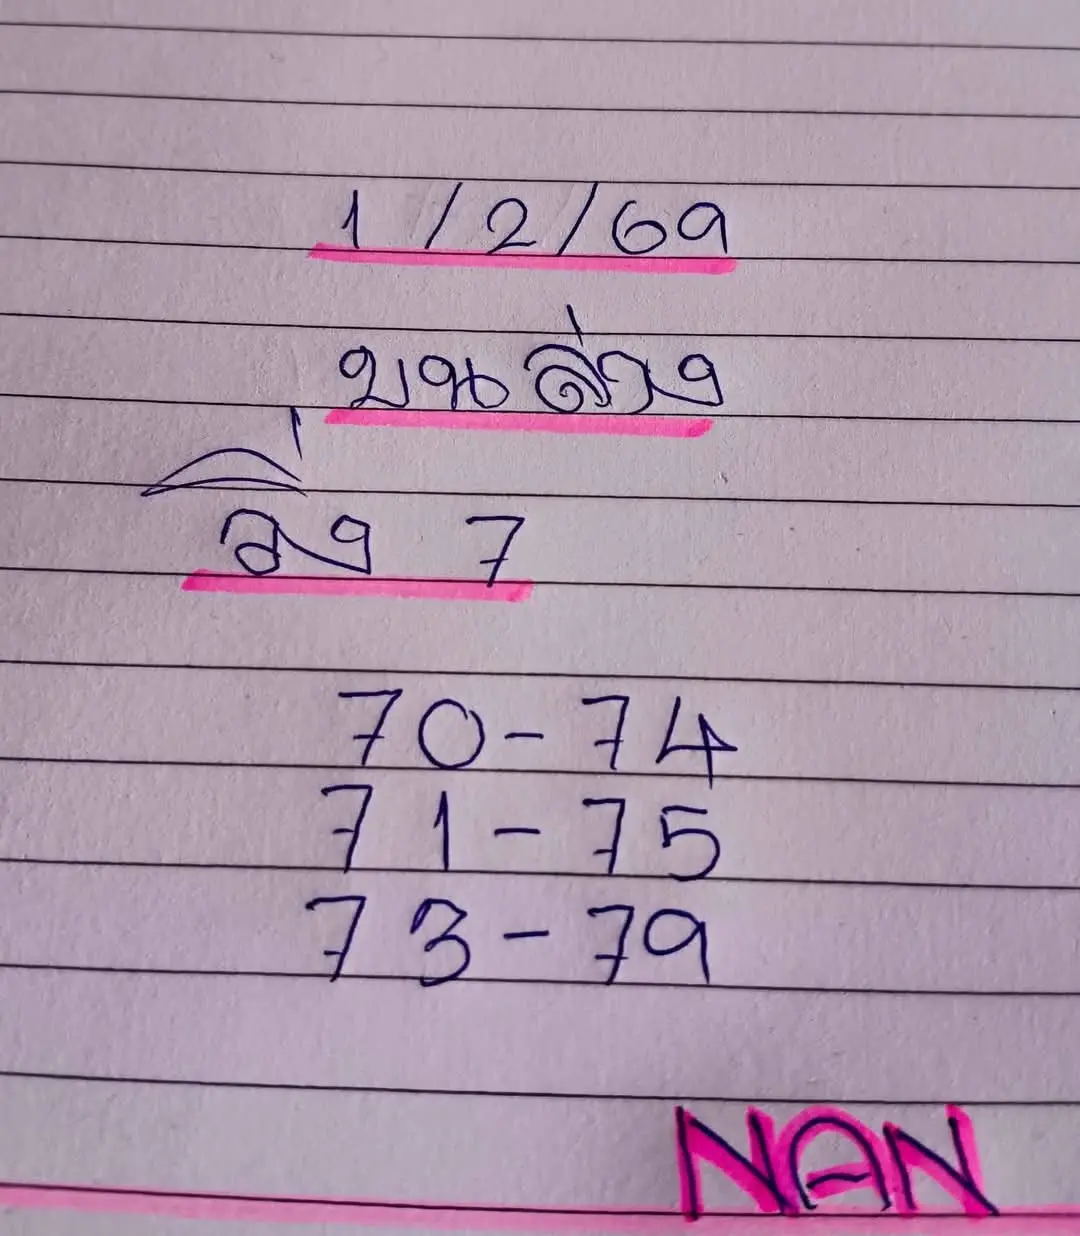 1/2/69
บนล่าง
วิ่ง 7
70-74
71-75
73-79
NAN